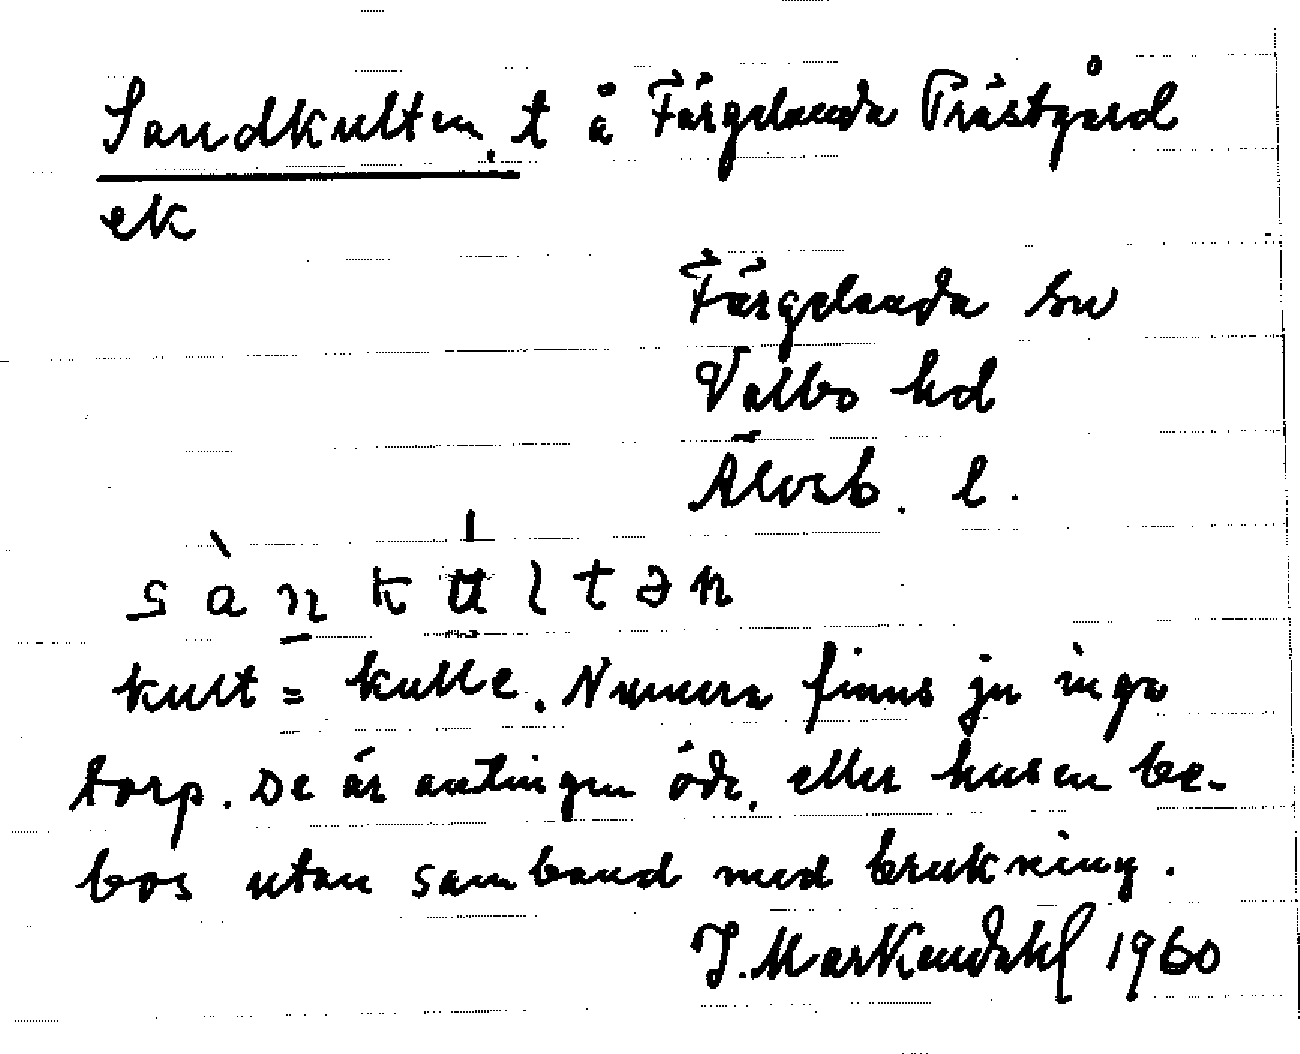 Sandkulten, t å Färgelanda Prästgård
ek
Färgelanda sn
Valbo hd
Älvsb. l.
sànku̍ltən
kult = kulle. Numera finns ju inga
torp. De är antingen öde, eller husen be-
bos utan samband med brukning.
J. Markendahl 1960